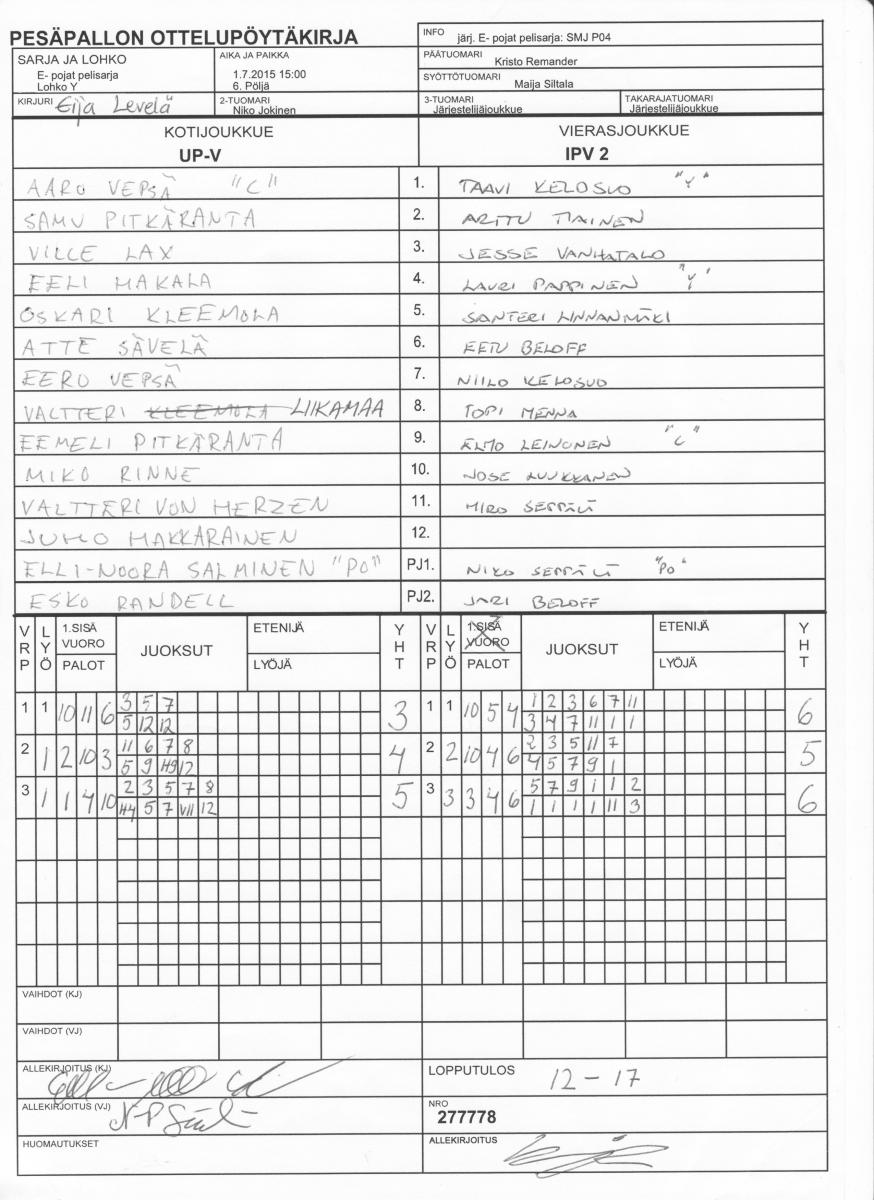 PESÄPALLON OTTELUPÖYTÄKIRJA
INFO järj. E- pojat pelisarja: SMJ P04
SARJA JA LOHKO
E- pojat pelisarja
Lohko Y
AIKA JA PAIKKA
1.7.2015 15:00
6. Pöljä
PÄÄTUOMARI
Kristo Remander
SYÖTTÖTUOMARI
Maija Siltala
KIRJURI Eija Levelä
2-TUOMARI
Niko Jokinen
3-TUOMARI
Järjestelijäjoukkue
TAKARAJATUOMARI
Järjestelijäjoukkue
KOTIJOUKKUE VIERASJOUKKUE
UP-V IPV 2
AARO VEPSÄ "C" 1. TAAVI KELOSUO "Y"
SAMU PITKÄRANTA 2. ARTTU TIAINEN
VILLE LAX 3. JESSE VANHATALO
EELI MAKALA 4. LAURI PAPPINEN "Y"
OSKARI KLEEMOLA 5. SANTERI LINNANMÄKI
ATTE SÄVELÄ 6. EETU BELOFF
EERO VEPSÄ 7. NIILO KELOSUO
VALTTERI KLEEMOLA LIIKAMAA 8. TOPI MENNA
EEMELI PITKÄRANTA 9. ELMO LEINONEN "C"
MIKO RINNE 10. JOSE LUUKKANEN
VALTTERI VON HERZEN 11. MIRO SEPPÄLÄ
JUHO MAKKARAINEN 12.
ELLI-NOORA SALMINEN "PO" PJ1. NIKO SEPPÄLÄ "PO"
ESKO RANDELL PJ2. JARI BELOFF
VRP LYÖ 1.SISÄ VUORO PALOT JUOKSUT ETENIJÄ LYÖJÄ YHT VRP LYÖ 1.SISÄ VUORO PALOT JUOKSUT ETENIJÄ LYÖJÄ YHT
1 1 10 11 6 3 5 7 3 1 1 10 5 4 1 2 3 6 7 11 6
5 12 12 3 4 7 11 1 1
2 1 2 10 3 11 6 7 8 4 2 2 10 4 6 2 3 5 11 7 5
5 9 H9 12 4 5 7 9 1
3 1 1 4 10 2 3 5 7 8 5 3 3 3 4 6 5 7 9 1 1 2 6
H4 5 7 VII 12 1 1 1 1 11 3
VAIHDOT (KJ)
VAIHDOT (VJ)
ALLEKIRJOITUS (KJ)
LOPPUTULOS 12 - 17
ALLEKIRJOITUS (VJ)
NRO
277778
HUOMAUTUKSET
ALLEKIRJOITUS